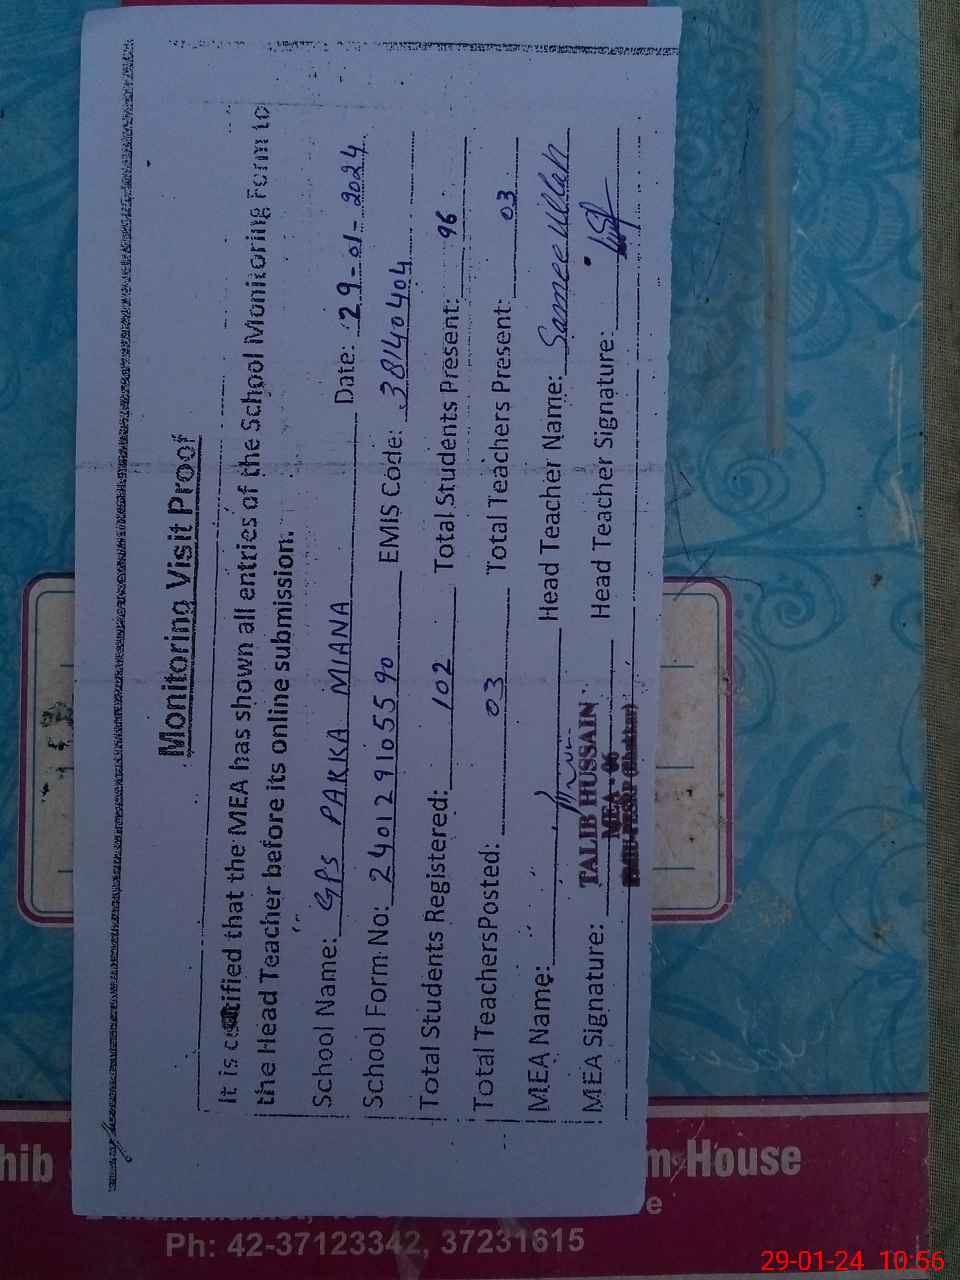 Monitoring Visit Proof
It is certified that the MEA has shown all entries of the School Monitoring Form to
the Head Teacher before its online submission.
School Name: GPS PARKA MIANA Date: 29-01-2024
School Form No: 240129105590 EMIS Code: 38140404
Total Students Registered: 102 Total Students Present: 96
Total TeachersPosted: 03 Total Teachers Present: 03
MEA Name: Head Teacher Name: Sameeullah
MEA Signature: Head Teacher Signature:
TALIB HUSSAIN
MEA - 96
hib
m House
e
Ph: 42-37123342, 37231615
29-01-24 10:56